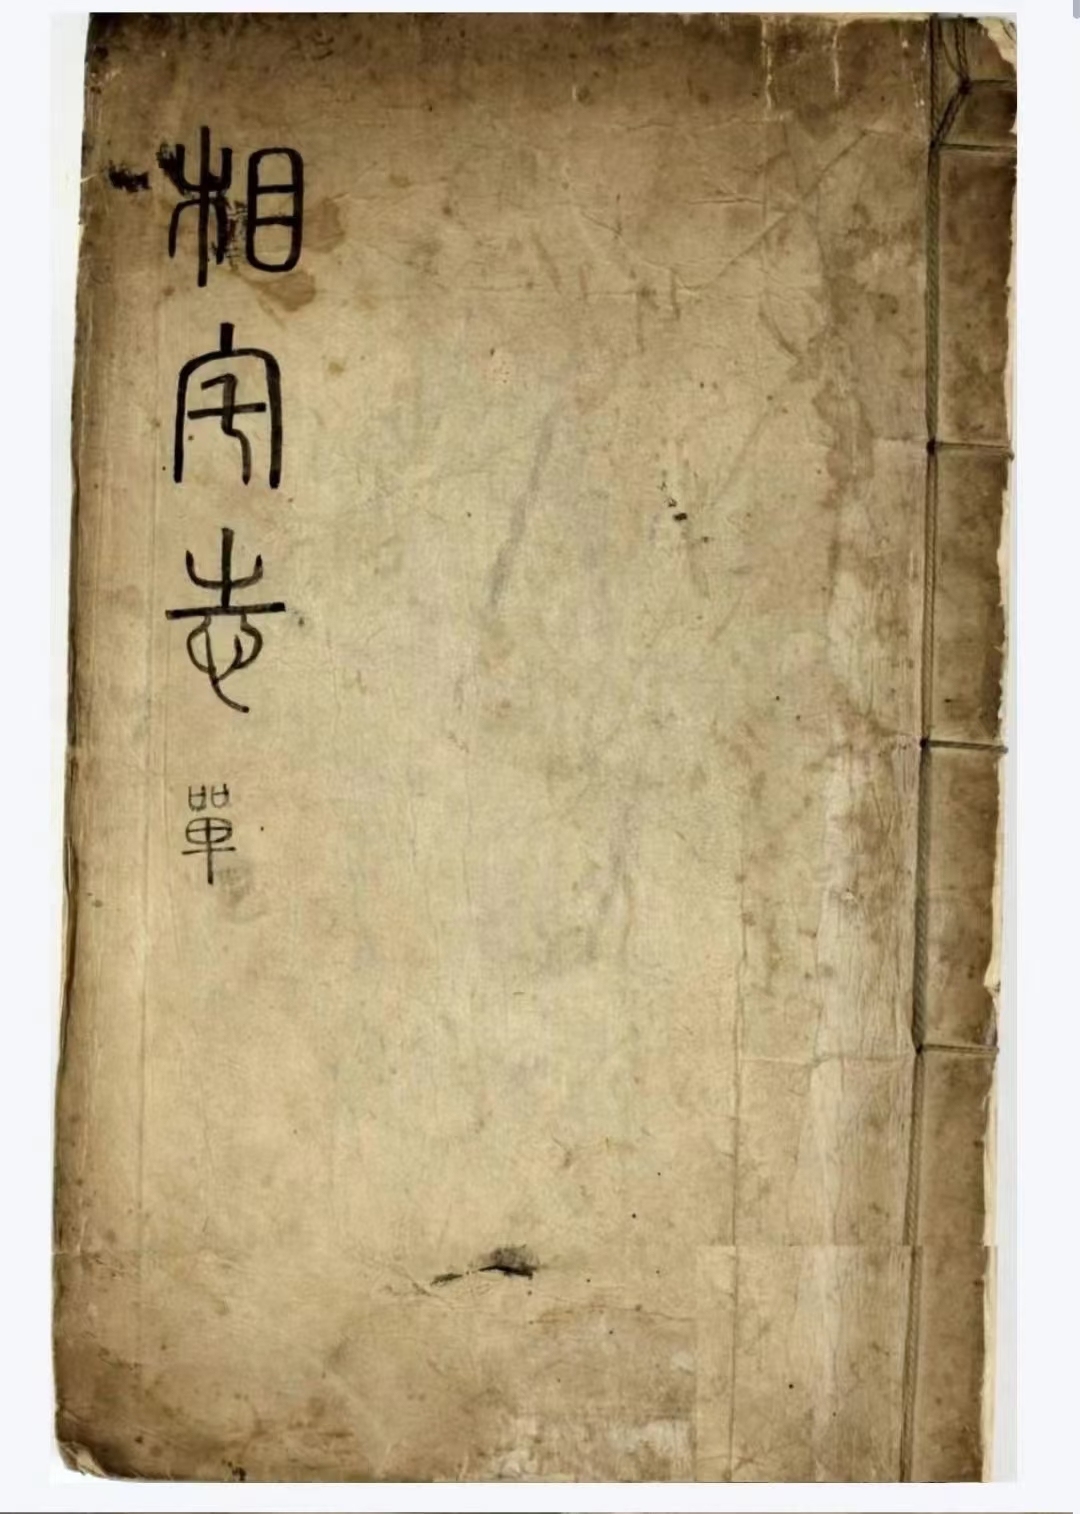 相宅志
單